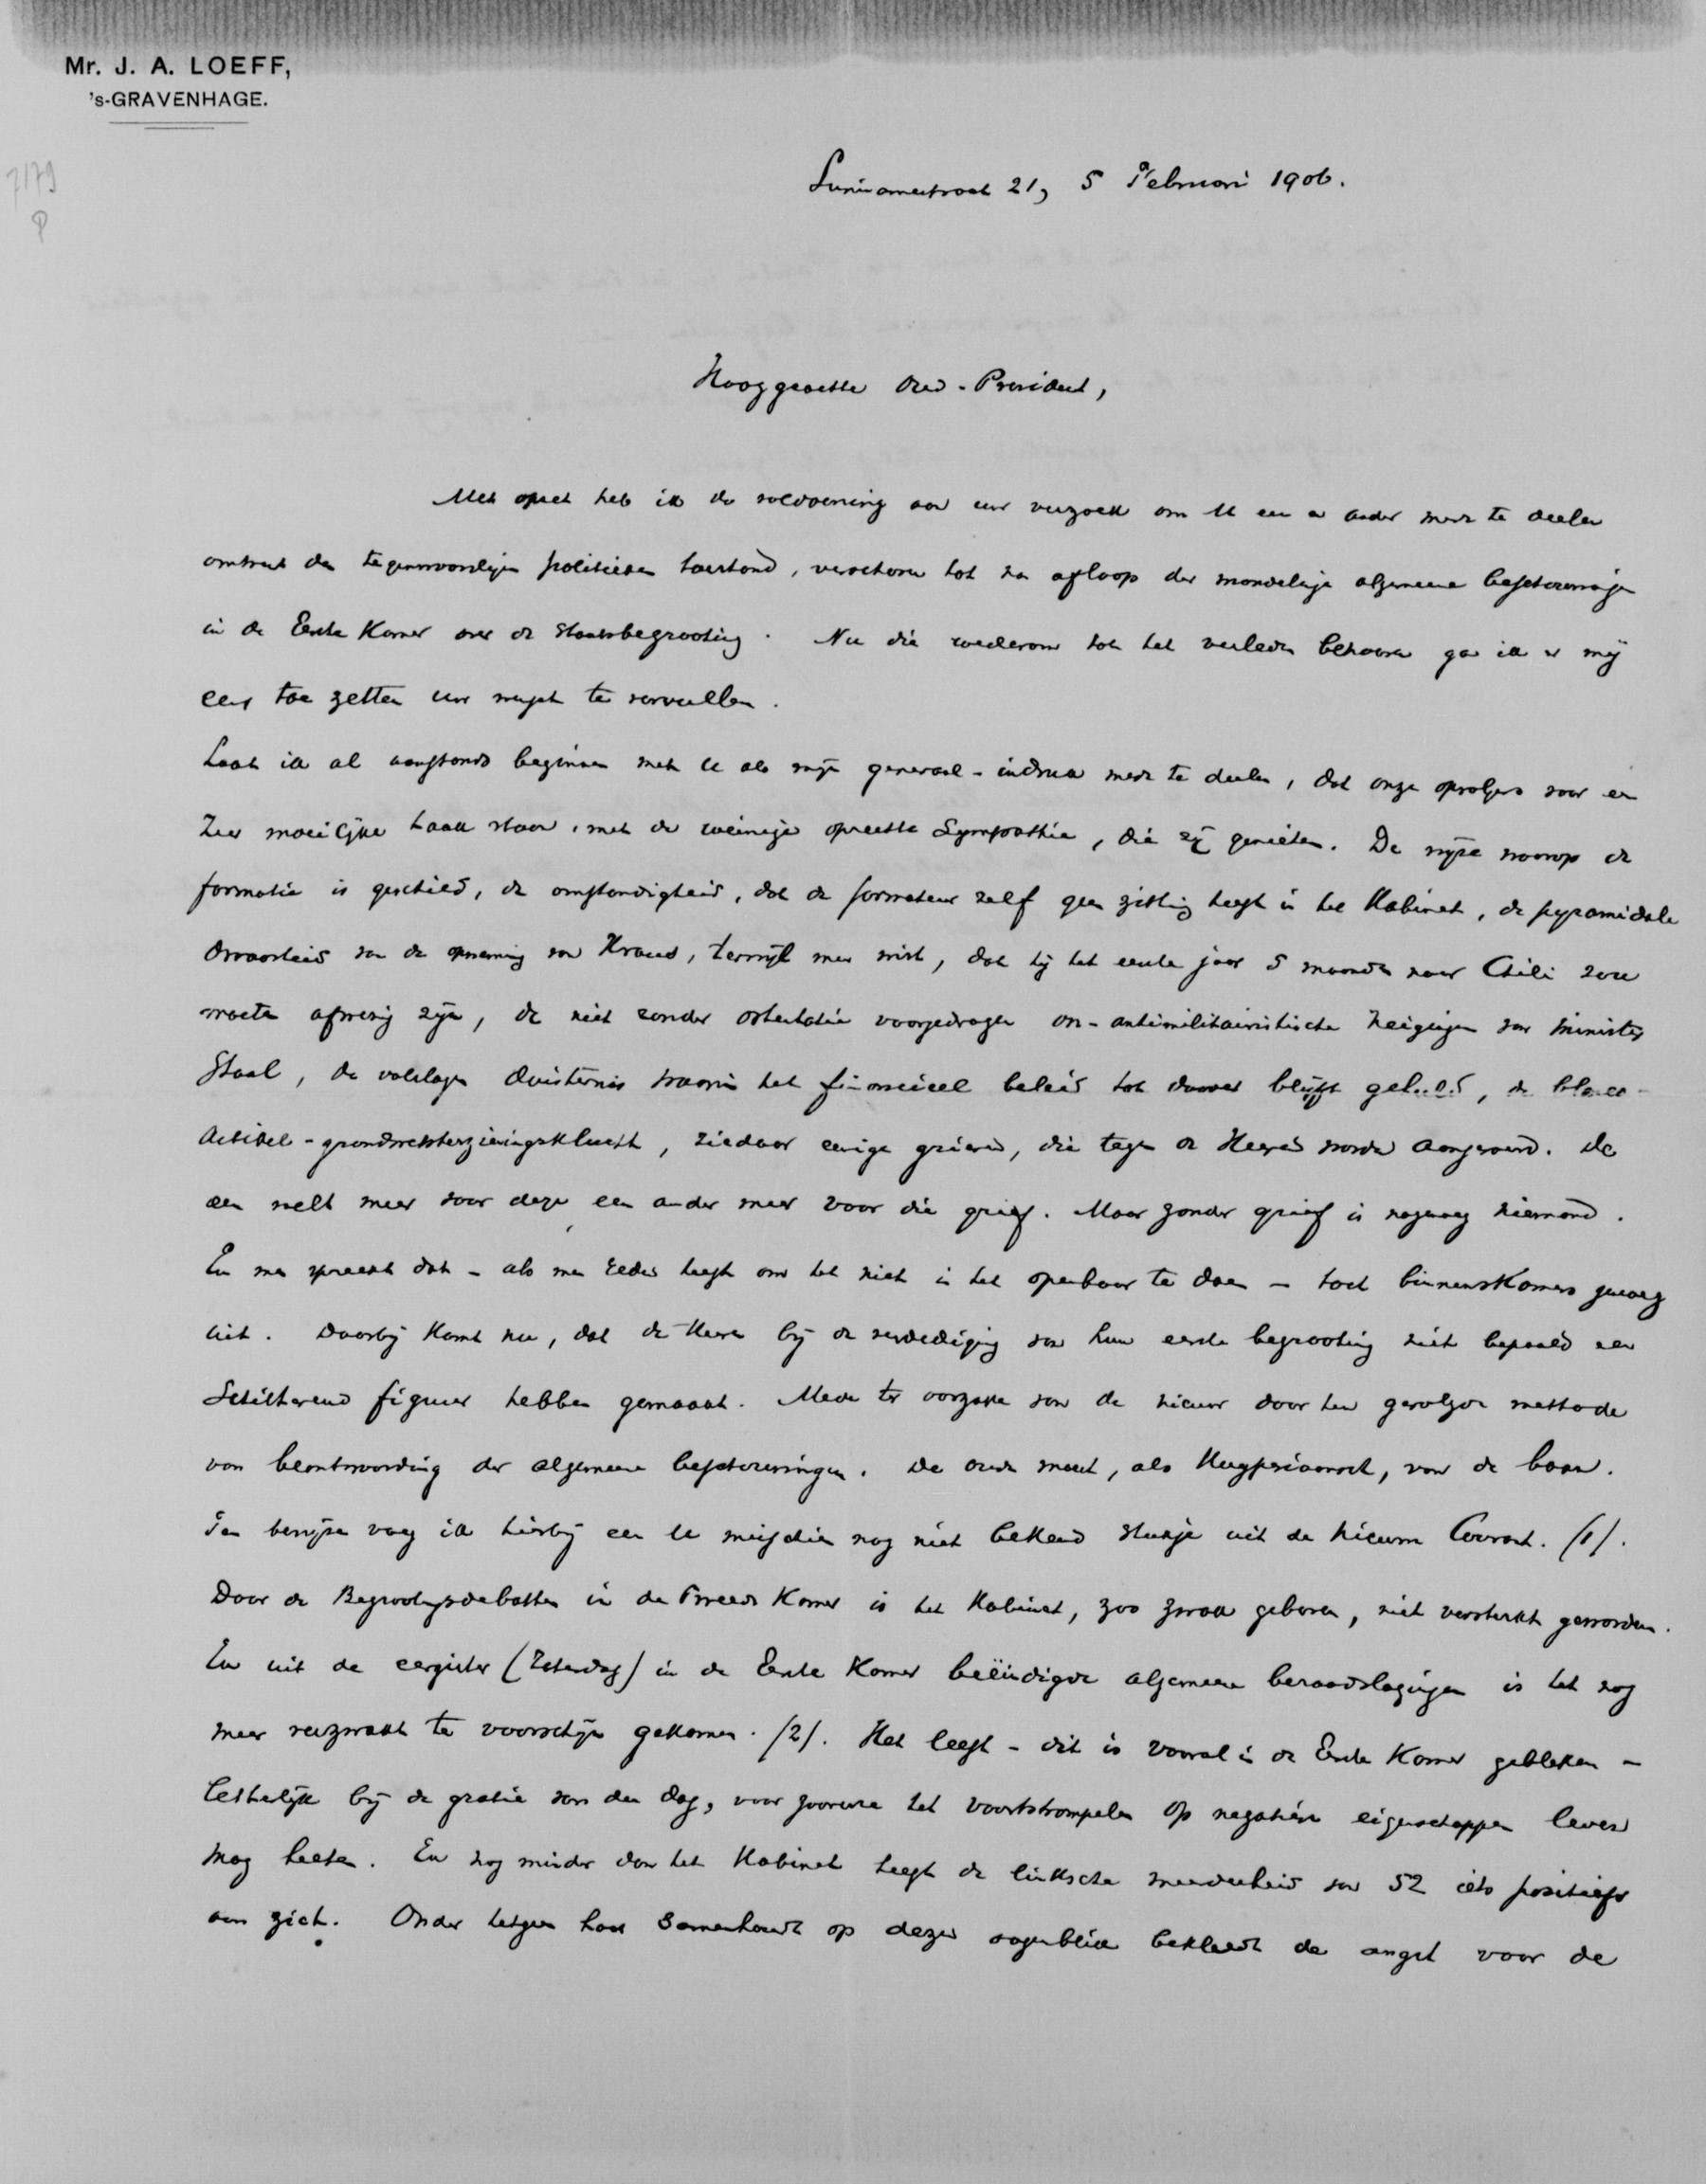 Mr. J. A. LOEFF,
's-GRAVENHAGE.
7179
Surinamestraat 21, 5 Februari 1906.
Hooggeachte Oud-President,
Met opzet heb ik de voldoening aan uw verzoek om U een en ander mede te deelen
omtrent den tegenwoordigen politieken toestand, verschoven tot na afloop der mondelinge algemeene beschouwingen
in de Eerste Kamer over de Staatsbegrooting. Nu die wederom tot het verleden behooren ga ik er mij
eens toe zetten uw wensch te vervullen.
Laat ik al aanstonds beginnen met U als mijn generaal-indruk mede te deelen, dat onze opvolgers voor een
zeer moeilijke taak staan, met de weinige oprechte sympathie, die zij genieten. De wijze waarop de
formatie is geschied, de omstandigheid, dat de formateur zelf geen zitting heeft in het Kabinet, de pyramidale
dwaasheid van de opneming van Kraus, terwijl men wist, dat hij het eerste jaar 5 maanden naar Chili zou
moeten afwezig zijn, de niet zonder ostentatie voorgedragen on-antimilitairistische neigingen van Minister
Staal, de volslagen duisternis waarin het financieel beleid tot dusver blijft gehuld, de blanco-
artikel-grondwetsherzieningsklucht, ziedaar eenige grieven, die tegen de Heeren worden aangevoerd. De
een voelt meer voor deze een ander meer voor die grief. Maar zonder grief is nagenoeg niemand.
En men spreekt dat - als men reden heeft om het niet in het openbaar te doen - toch binnenskamers genoeg
uit. Daarbij komt nu, dat de Heeren bij de verdediging van hun eerste begrooting niet bepaald een
schitterend figuur hebben gemaakt. Mede ter oorzake van de nieuwe door hen gevolgde methode
van beantwoording der algemeene beschouwingen. De oude moest, als Kuyperiaansch, van de baan.
Ten bewijze voeg ik hierbij een U misschien nog niet bekend stukje uit de Nieuwe Courant. (1).
Door de Begrootingsdebatten in de Tweede Kamer is het Kabinet, zoo zwak geboren, niet versterkt geworden.
En uit de eergister (Zaterdag) in de Eerste Kamer beëindigde algemeene beraadslagingen is het nog
meer verzwakt te voorschijn gekomen. (2). Het leeft - dit is vooral in de Eerste Kamer gebleken -
letterlijk bij de gratie van den dag, voor zooverre het voortstrompelen op negatieve eigenschappen leven
mag heeten. En nog minder dan het Kabinet heeft de linksche meerderheid van 52 iets positiefs
aan zich. Onder hetgeen haar samenhoudt op dezen oogenblik bekleedt de angst voor de